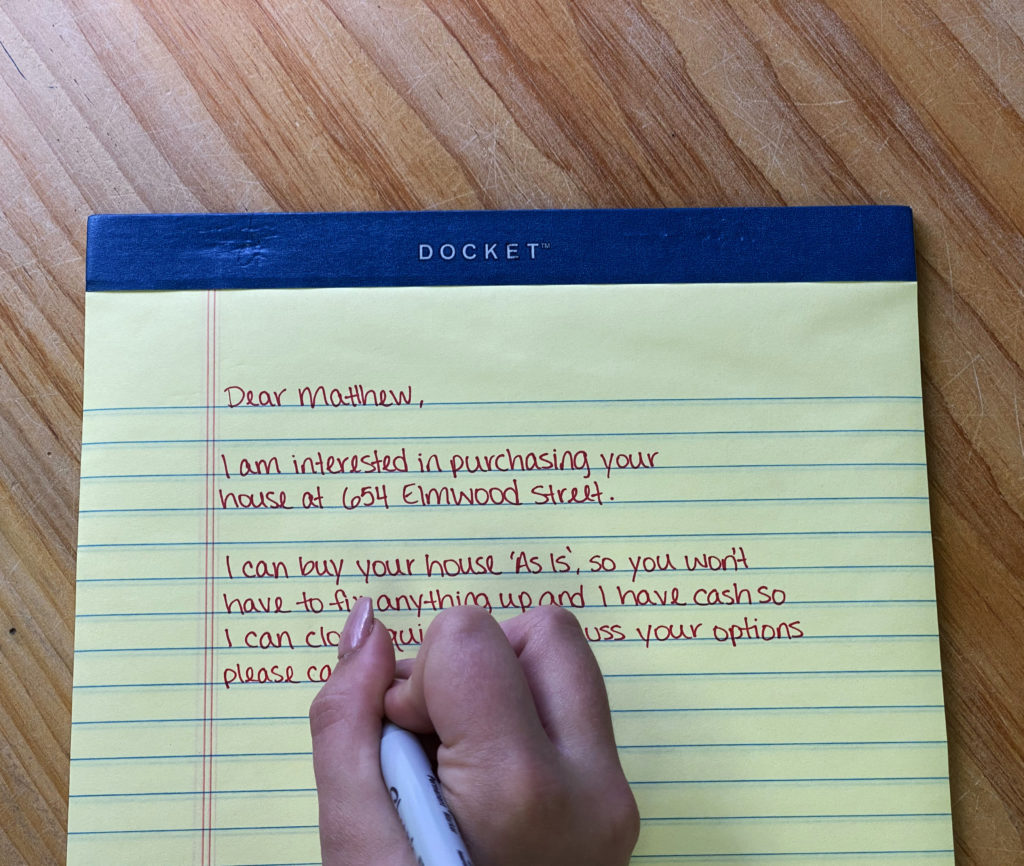 DOCKET™
Dear Matthew,
I am interested in purchasing your
house at 654 Elmwood Street.
I can buy your house 'As Is', so you won't
have to fix anything up and I have cash so
I can your options
please